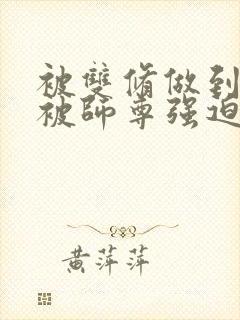 被雙脩做到
被師尊强迫
黃萍萍